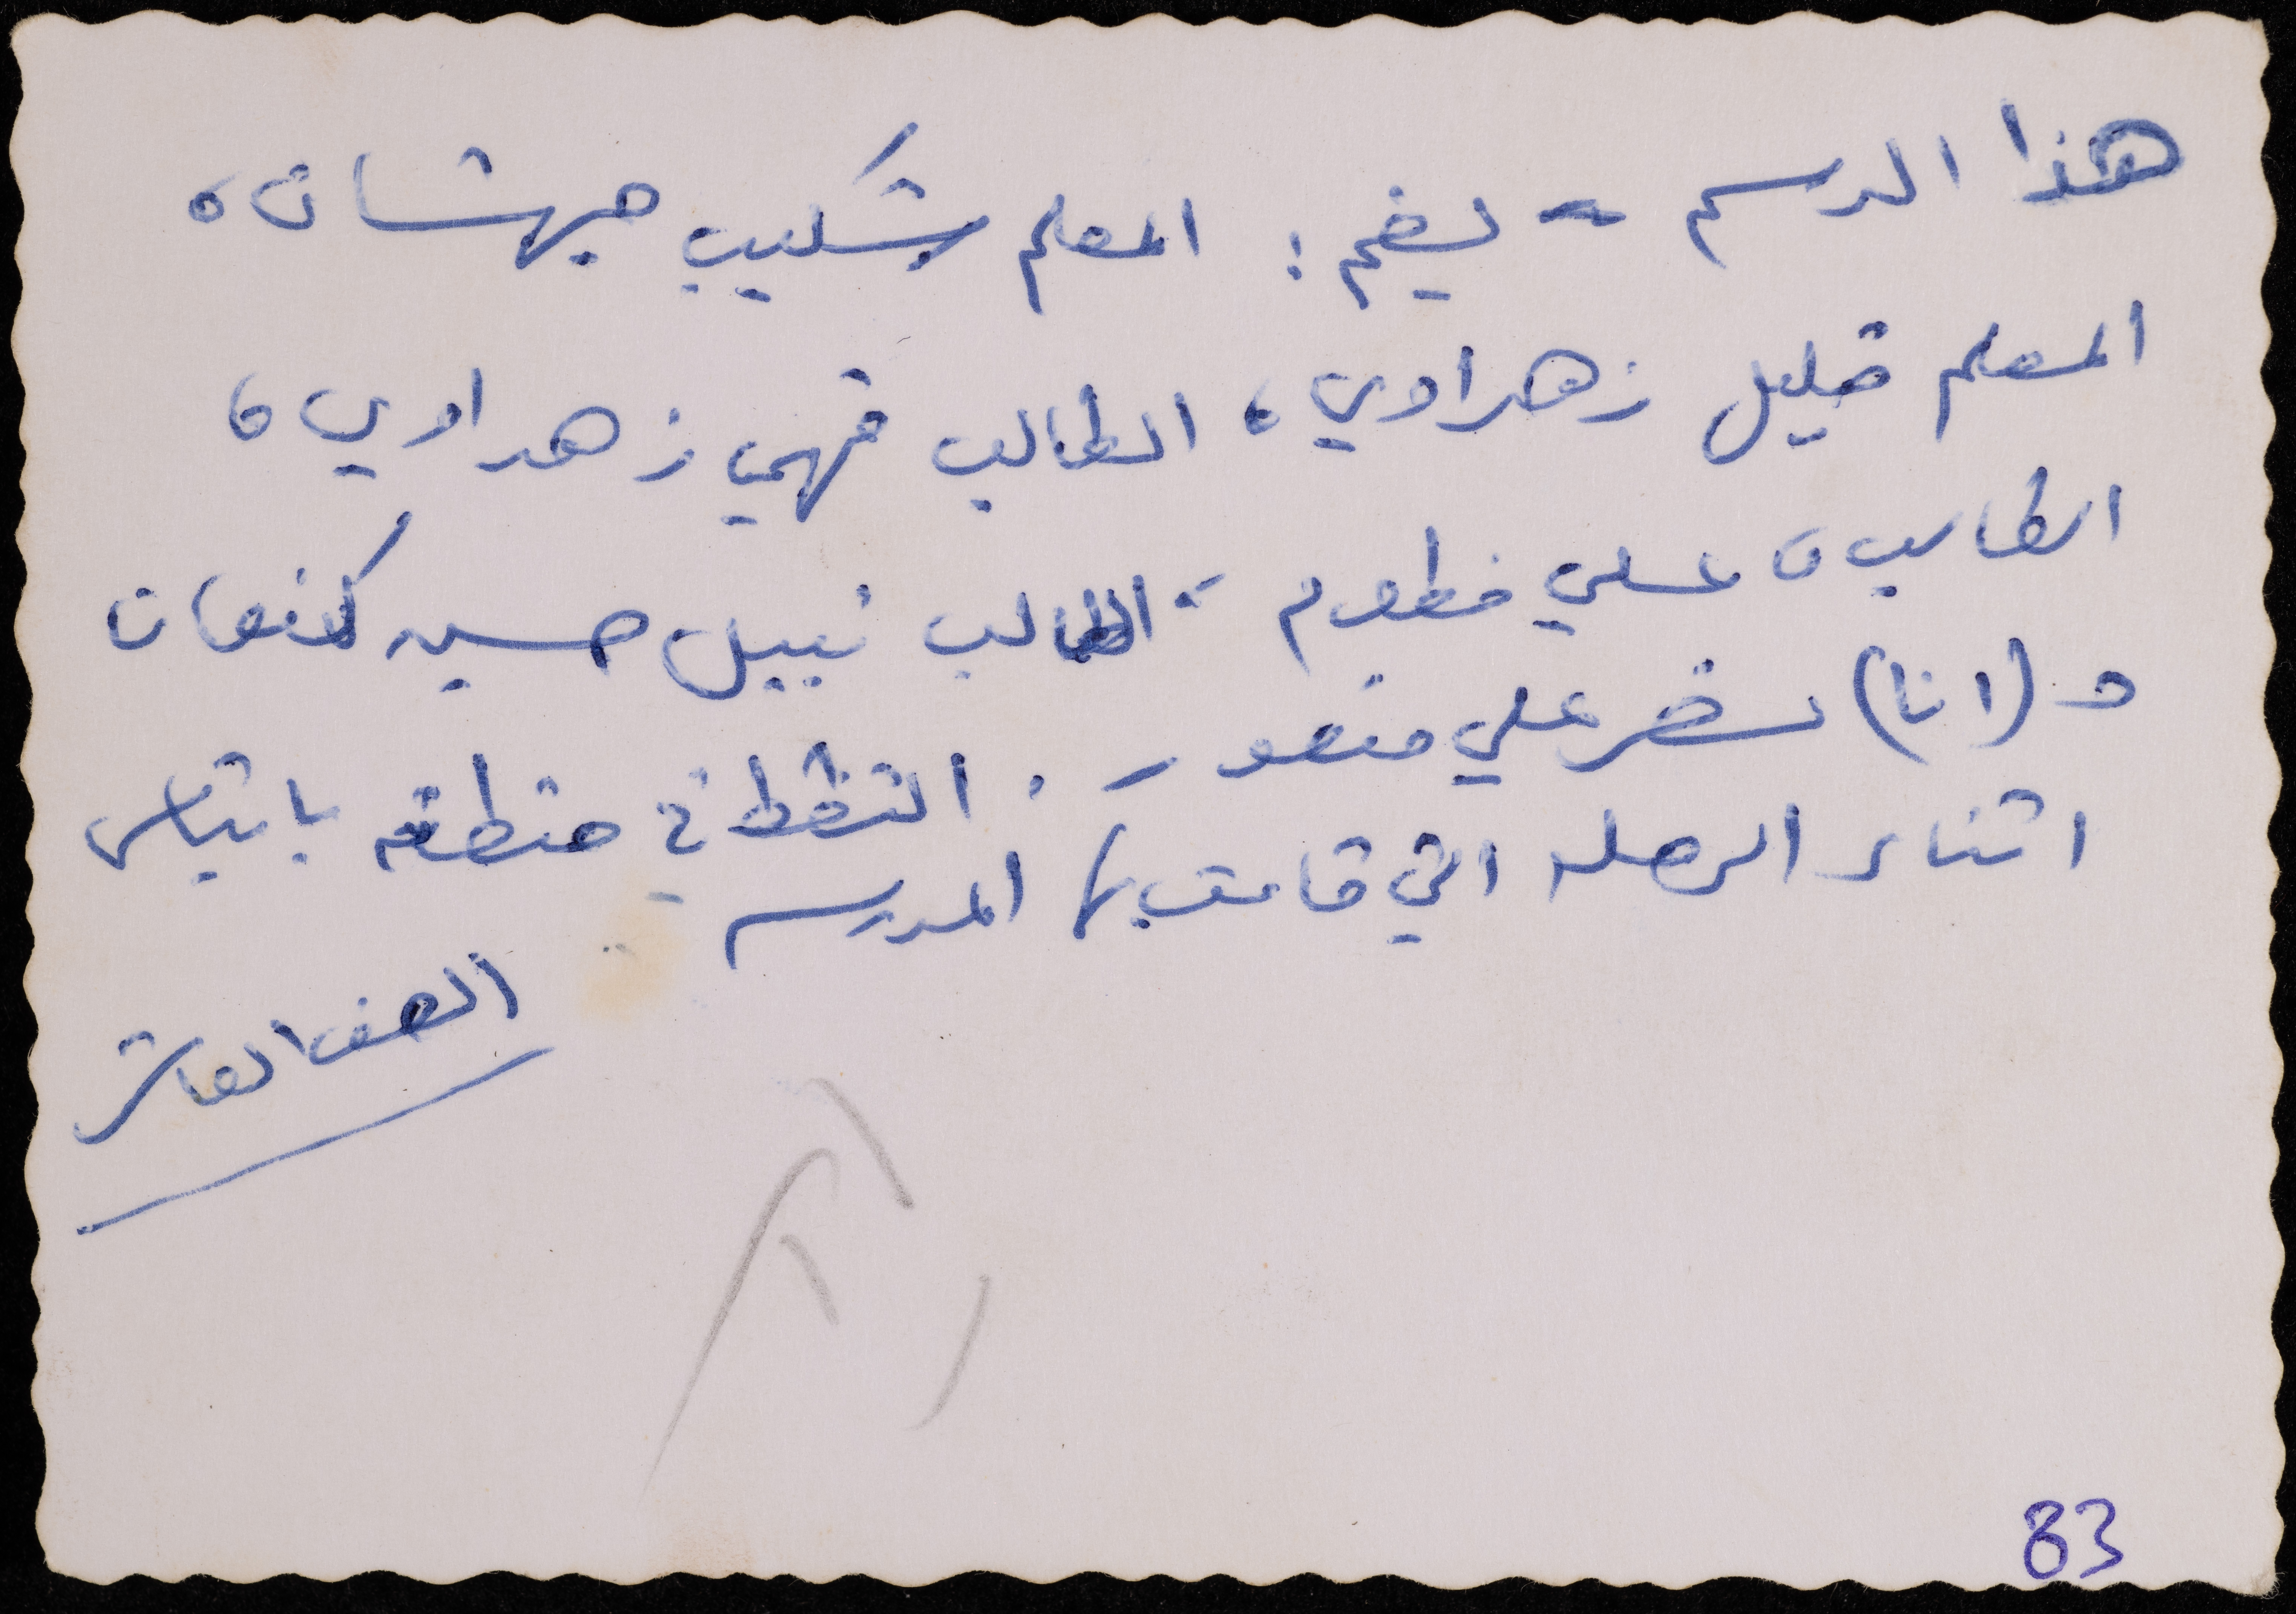 هذا الرسم - يضم: المعلم شكيب جهشان،
المعلم خليل زهراوي، الطالب فهمي زهراوي،
الطالب علي خطوم، الطالب نبيل حسين كنعان
و(انا) نضر علي منصور. التقط في منطقة بانياس
اثناء الرحله التي قامت بها المدرسه
الصف العاشر
83